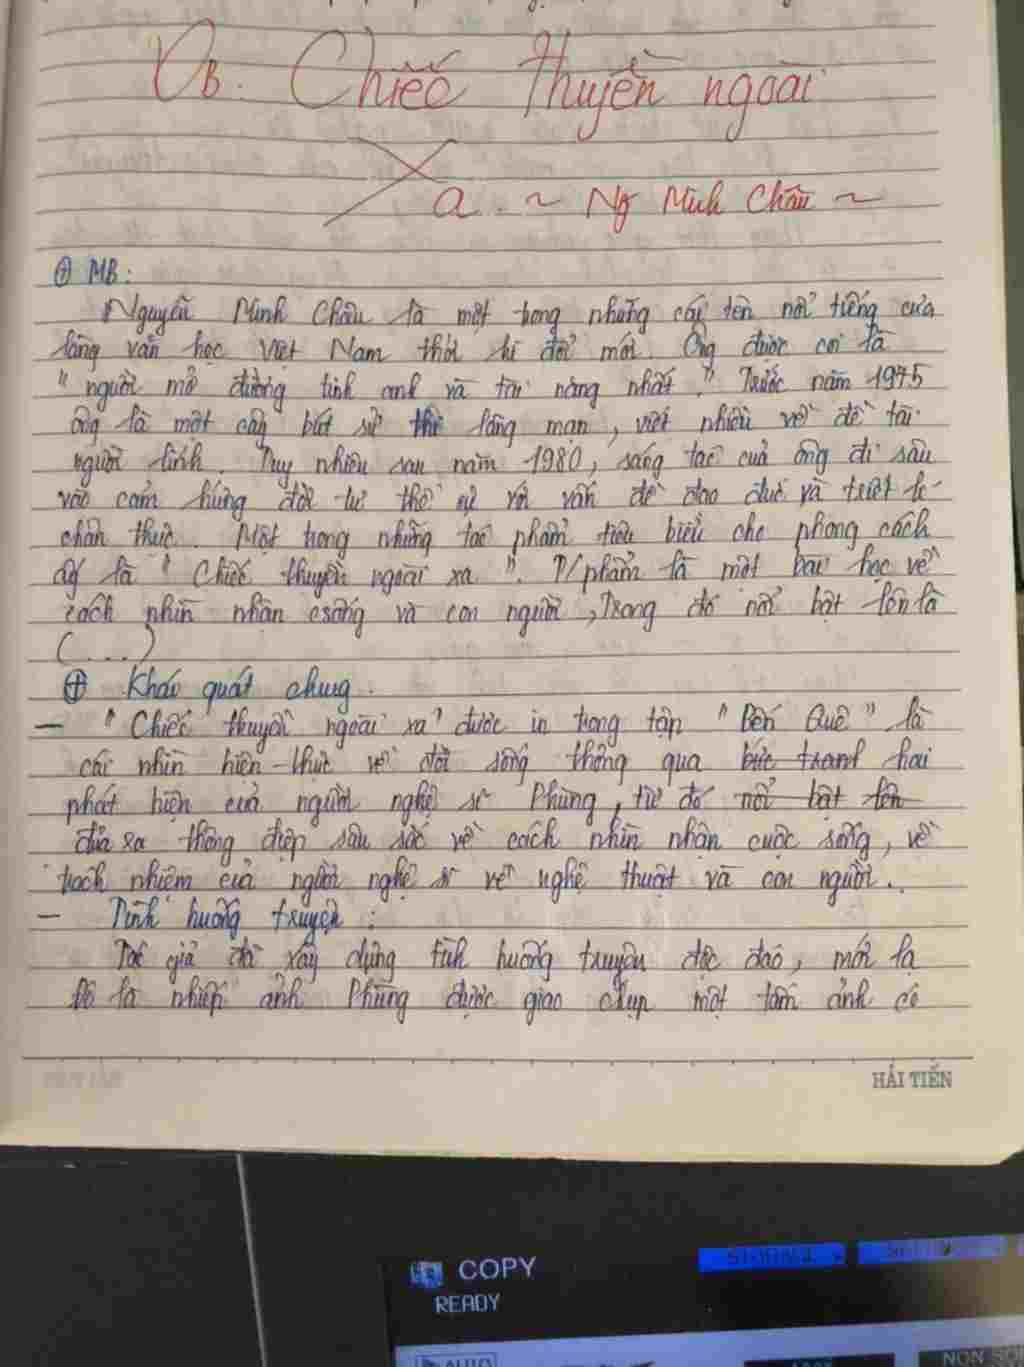 VB. Chiếc thuyền ngoài
Xa ~ Ng Minh Châu ~
⊕ MB:
Nguyễn Minh Châu là một trong những cái tên nổi tiếng của
làng văn học Việt Nam thời kì đổi mới. Ông được coi là
" người mở đường tinh anh và tài năng nhất ". Trước năm 1975
ông là một cây bút sử thi lãng mạn, viết nhiều về đề tài
người lính. Tuy nhiên sau năm 1980, sáng tác của ông đi sâu
vào cảm hứng đời tư thế sự với vấn đề đạo đức và triết lí
chân thực. Một trong những tác phẩm tiêu biểu cho phong cách
ấy là " Chiếc thuyền ngoài xa ". T/phẩm là một bài học về
cách nhìn nhận csống và con người, Trong đó nổi bật lên là
(...)
⊕ Khái quát chung.
- " Chiếc thuyền ngoài xa" được in trong tập " Bến Quê " là
cái nhìn hiện thực về đời sống thông qua bức tranh hai
phát hiện của người nghệ sĩ Phùng, từ đó nổi bật lên
đưa ra thông điệp sâu sắc về cách nhìn nhận cuộc sống, về
trách nhiệm của người nghệ sĩ về nghệ thuật và con người..
- Tình huống truyện :
Tác giả đã xây dựng tình huống truyện độc đáo, mới lạ
Đó là nhiếp ảnh Phùng được giao chụp một tấm ảnh có
HẢI TIẾN
COPY
READY
AUTO